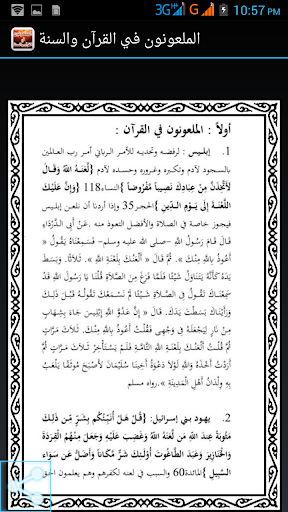 3G G 10:57 PM
الملعونون في القرآن والسنة
أولاً : الملعونون في القرآن :
1. إبليس : لرفضه وتحديه للأمر الرباني أمر رب العالمين
بالسجود لآدم وتكبره وغروره وحسده لآدم {لَّعَنَهُ اللَّهُ وَقَالَ
لَأَتَّخِذَنَّ مِنْ عِبَادِكَ نَصِيباً مَّفْرُوضاً }النساء118 {وَإِنَّ عَلَيْكَ
اللَّعْنَةَ إِلَى يَوْمِ الدِّينِ }الحجر35 وإذا أردنا أن نلعن إبليس
فيجوز خاصة في الصلاة والأفضل التعوذ منه .عَنْ أَبِى الدَّرْدَاءِ
قَالَ قَامَ رَسُولُ اللَّهِ -صلى الله عليه وسلم- فَسَمِعْنَاهُ يَقُولُ «
أَعُوذُ بِاللَّهِ مِنْكَ ». ثُمَّ قَالَ « أَلْعَنُكَ بِلَعْنَةِ اللَّهِ ». ثَلاَثًا. وَبَسَطَ
يَدَهُ كَأَنَّهُ يَتَنَاوَلُ شَيْئًا فَلَمَّا فَرَغَ مِنَ الصَّلاَةِ قُلْنَا يَا رَسُولَ اللَّهِ قَدْ
سَمِعْنَاكَ تَقُولُ فِى الصَّلاَةِ شَيْئًا لَمْ نَسْمَعْكَ تَقُولُهُ قَبْلَ ذَلِكَ
وَرَأَيْنَاكَ بَسَطْتَ يَدَكَ. قَالَ « إِنَّ عَدُوَّ اللَّهِ إِبْلِيسَ جَاءَ بِشِهَابٍ
مِنْ نَارٍ لِيَجْعَلَهُ فِى وَجْهِى فَقُلْتُ أَعُوذُ بِاللَّهِ مِنْكَ. ثَلاَثَ مَرَّاتٍ
ثُمَّ قُلْتُ أَلْعَنُكَ بِلَعْنَةِ اللَّهِ التَّامَّةِ فَلَمْ يَسْتَأْخِرْ ثَلاَثَ مَرَّاتٍ ثُمَّ
أَرَدْتُ أَخْذَهُ وَاللَّهِ لَوْلاَ دَعْوَةُ أَخِينَا سُلَيْمَانَ لأَصْبَحَ مُوثَقًا يَلْعَبُ
بِهِ وِلْدَانُ أَهْلِ الْمَدِينَةِ ».رواه مسلم
2. يهود بني إسرائيل: {قُلْ هَلْ أُنَبِّئُكُم بِشَرٍّ مِّن ذَلِكَ
مَثُوبَةً عِندَ اللَّهِ مَن لَّعَنَهُ اللَّهُ وَغَضِبَ عَلَيْهِ وَجَعَلَ مِنْهُمُ الْقِرَدَةَ
وَالْخَنَازِيرَ وَعَبَدَ الطَّاغُوتَ أُوْلَئِكَ شَرٌّ مَّكَاناً وَأَضَلُّ عَن سَوَاء
السَّبِيلِ }المائدة60 والسبب في لعنه لكفرهم وهم يعلمون الحق